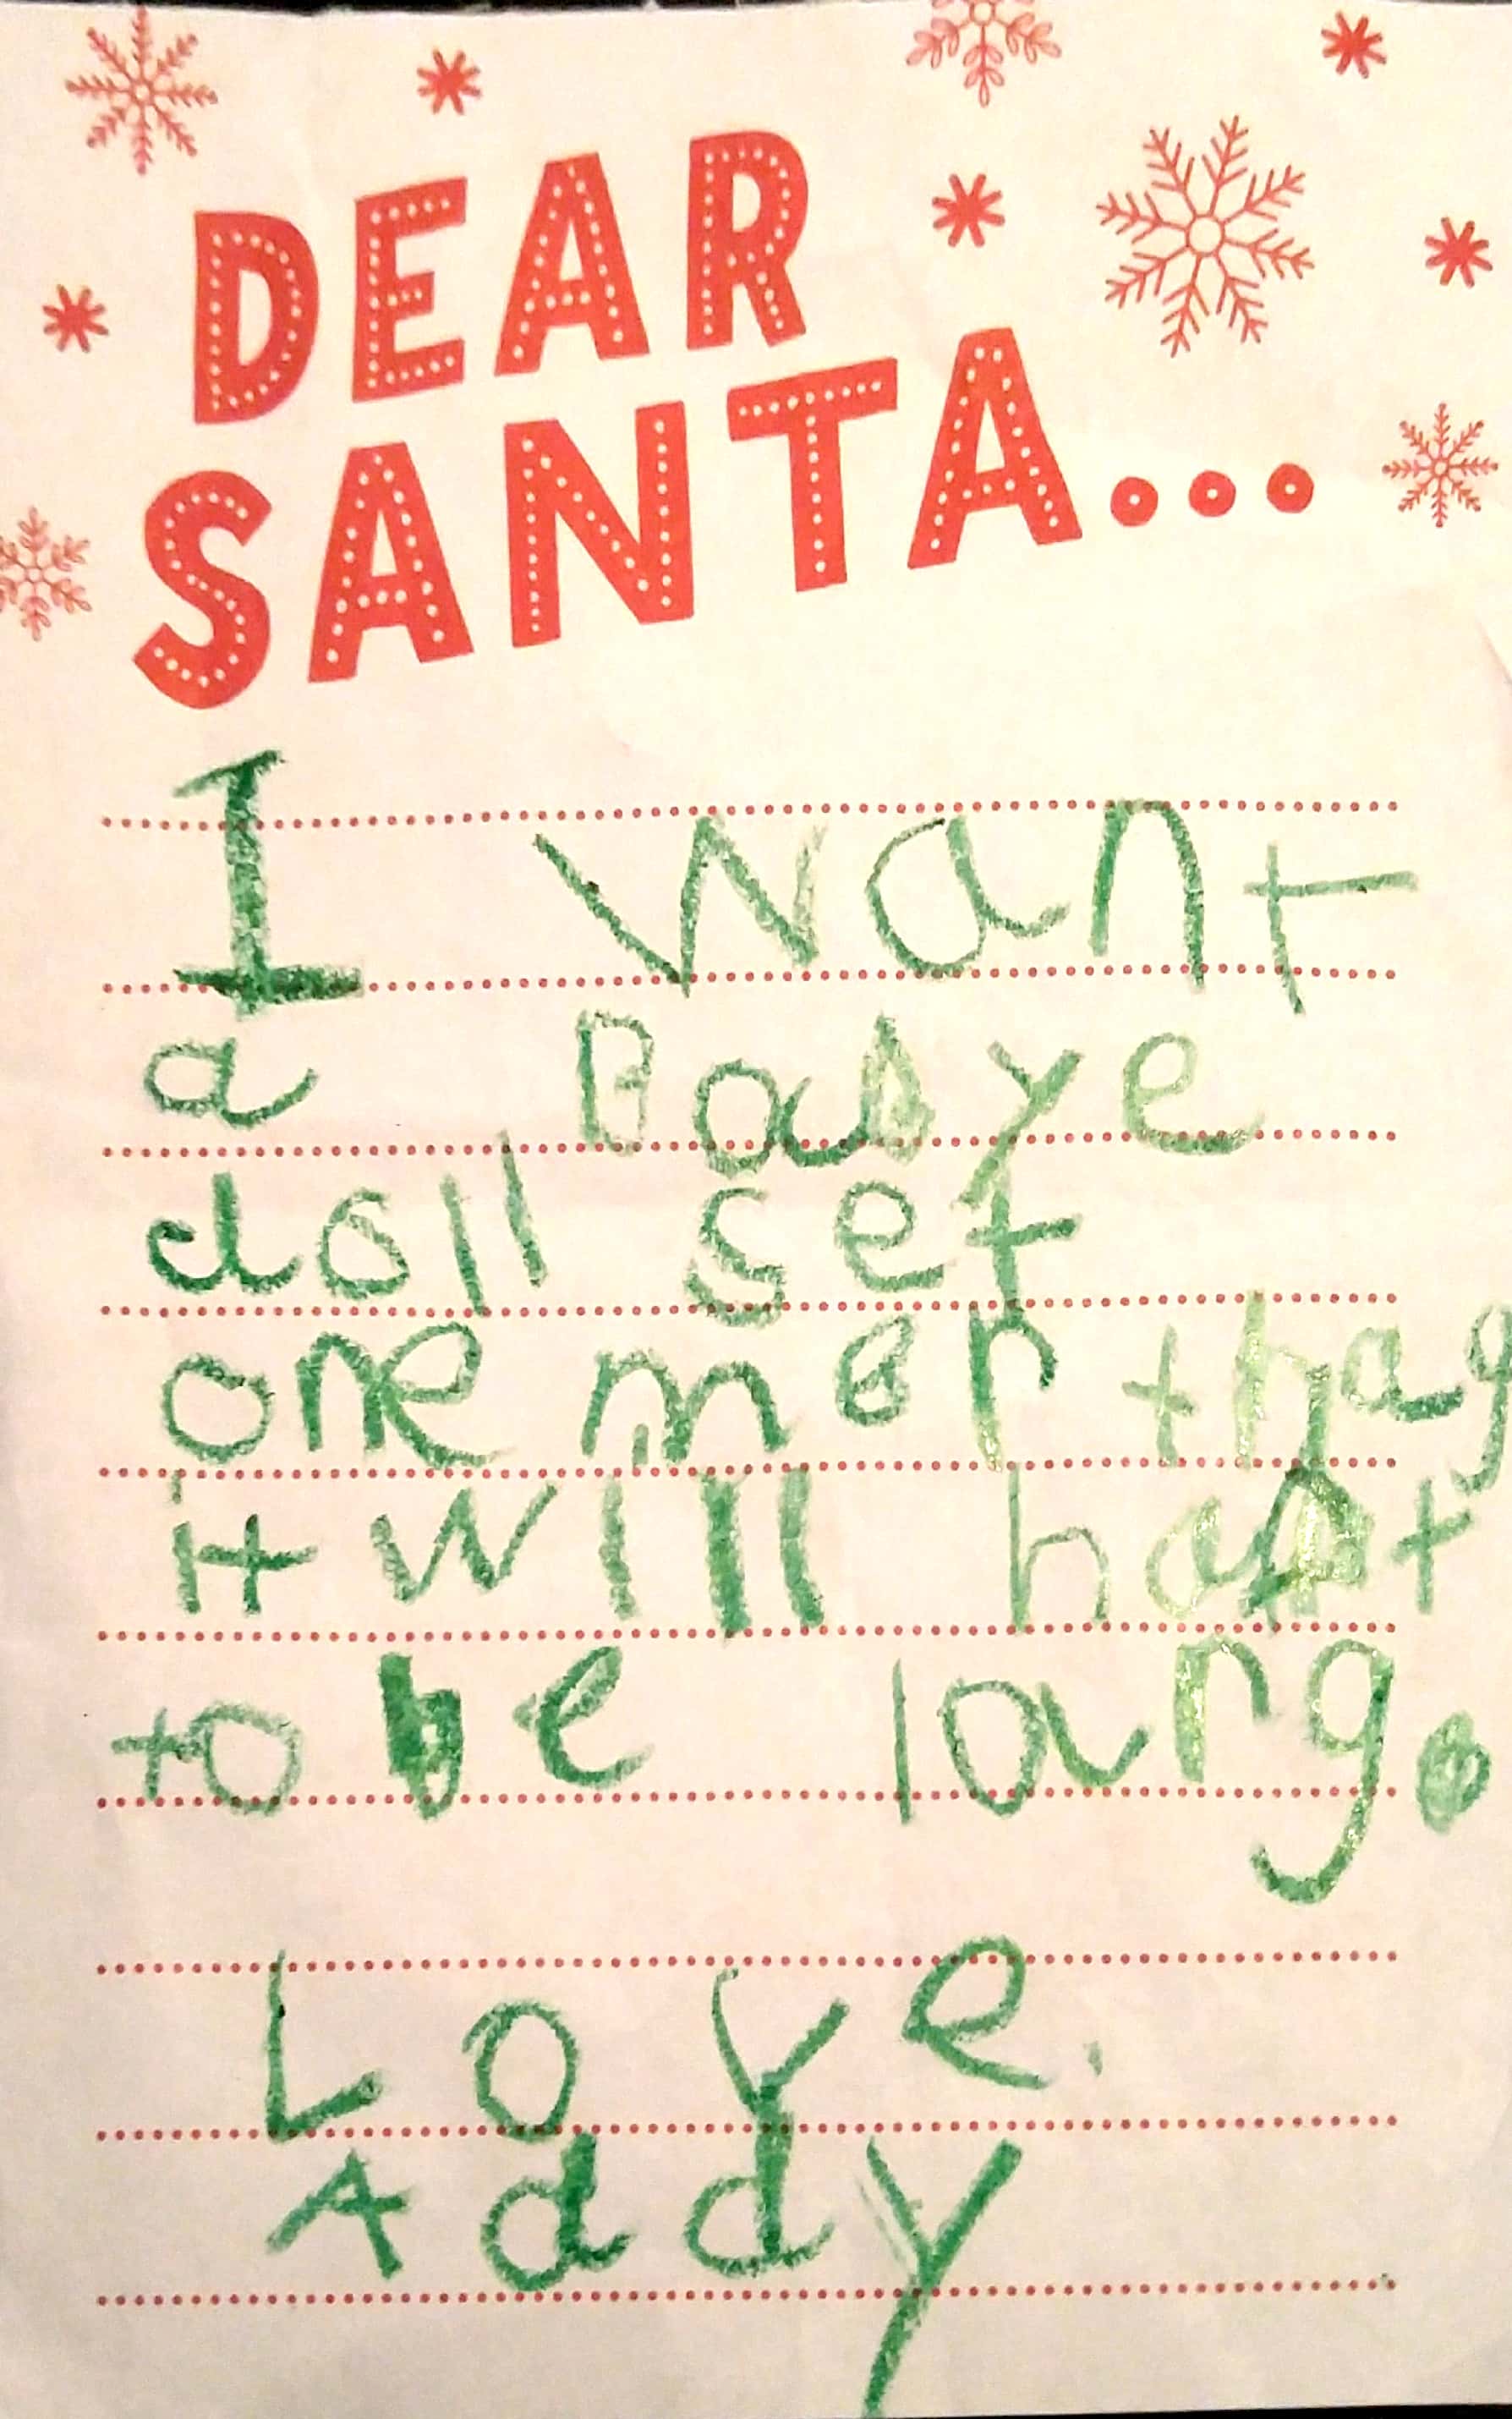 DEAR
SANTA...
I want
a Babye
doll set
one mer thag
it will haft
to be larg.
Love.
Addy